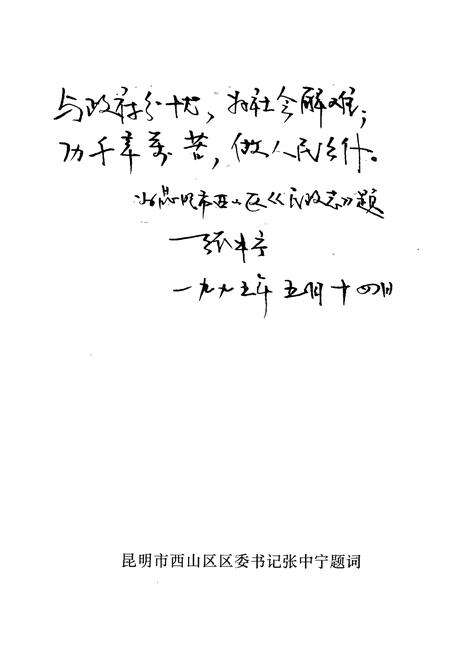 与政府分忧，为社会解难；
历千辛万苦，做人民公仆。
为昆明市西山区《民政志》题
张中宁
一九九五年五月十四日
昆明市西山区区委书记张中宁题词